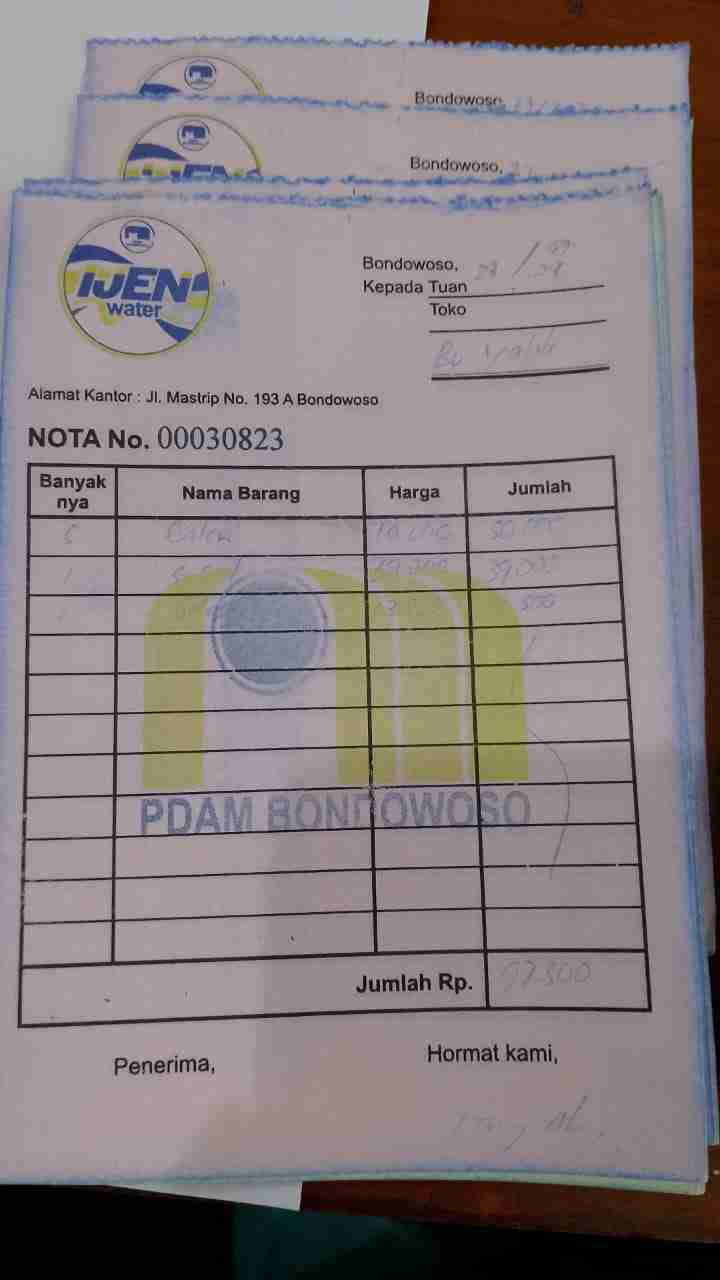 Bondowoso,
Bondowoso,
IJEN
water
Bondowoso,
Kepada Tuan
Toko
Bu
Alamat Kantor : Jl. Mastrip No. 193 A Bondowoso
NOTA No. 00030823
Banyak nya Nama Barang Harga Jumlah
5 50.000
1 39.000 39.000
500
PDAM BONDOWOSO
Jumlah Rp. 97.500
Penerima, Hormat kami,